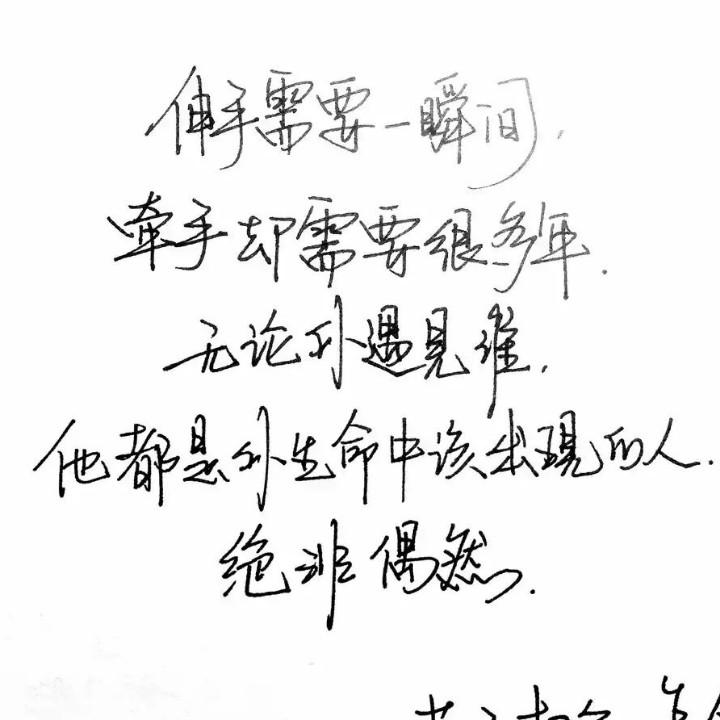 伸手需要一瞬间，
牵手却需要很多年.
无论你遇见谁，
他都是你生命中该出现的人.
绝非偶然.